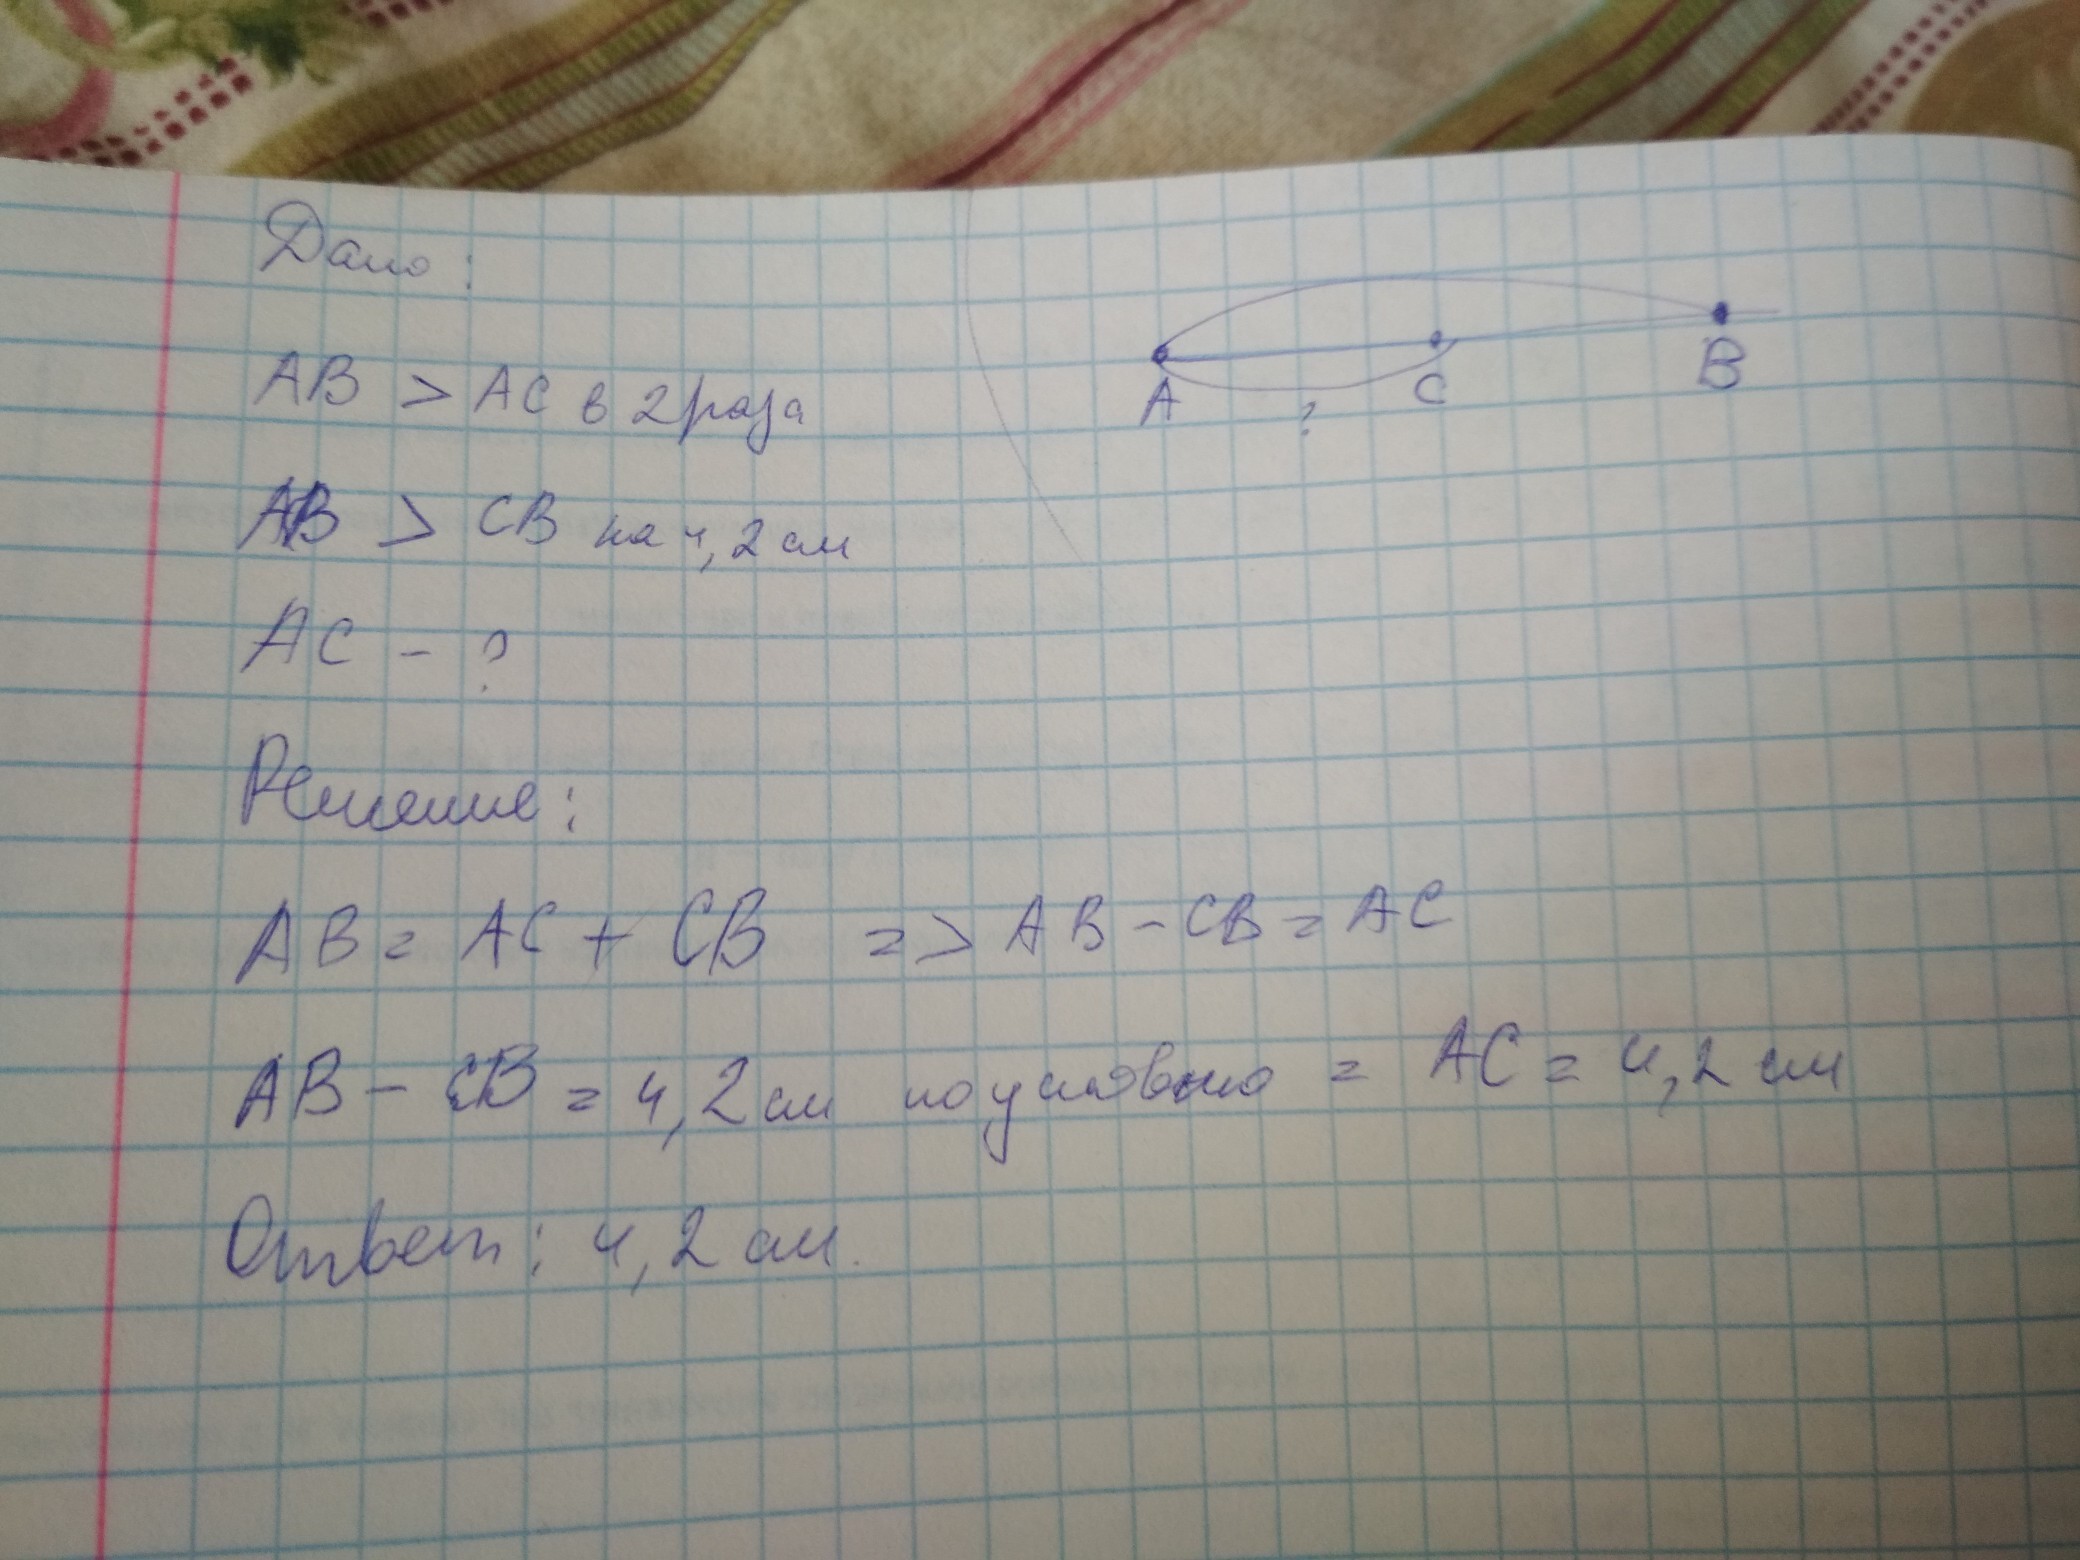 Дано:
AB > AC в 2 раза
AB > CB на 4,2 см
AC - ?
A
?
C
B
Решение:
AB = AC + CB => AB - CB = AC
AB - CB = 4,2 см по условию = AC = 4,2 см
Ответ: 4,2 см.